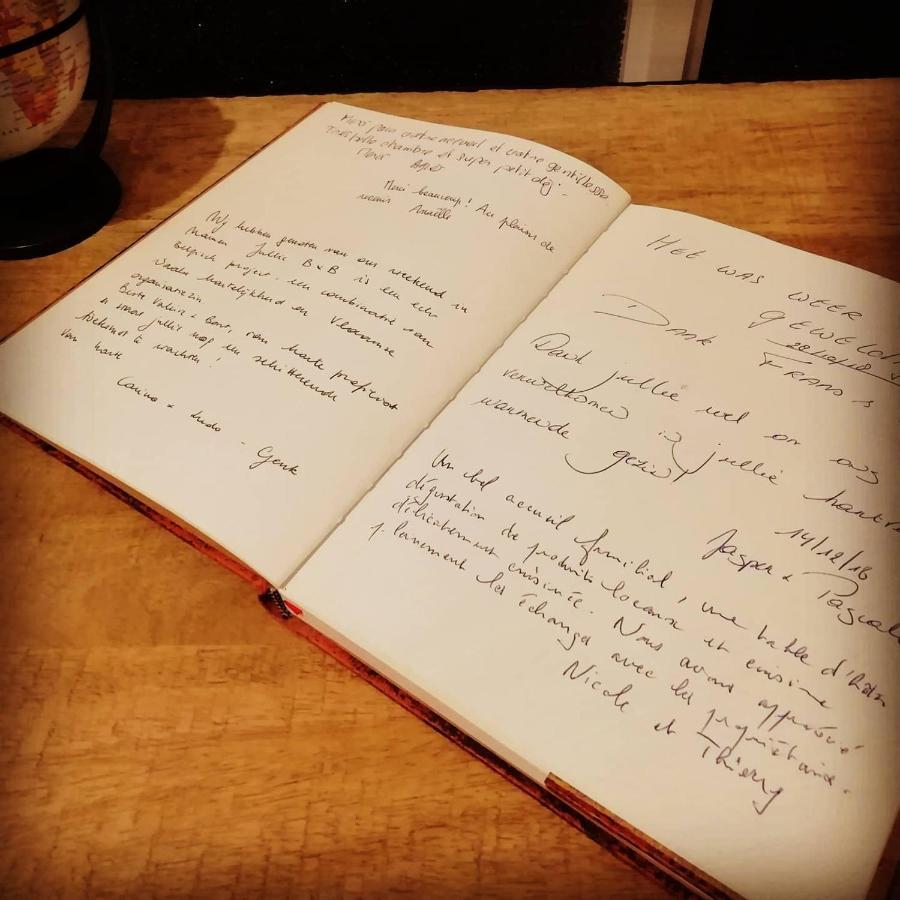 Merci pour votre accueil et votre gentillesse
Très belle chambre et super petit dej.
Merci
Merci beaucoup! Au plaisir de
revenir Anaëlle
Wij hebben genoten van ons weekend in
Namen. Jullie B&B is een echt
Belgisch project. een combinatie van
Waalse hartelijkheid en Vlaamse
organisatiezin
Beste Valérie & Bart, van harte proficiat
& moge jullie nog een schitterende
toekomst te wachten!
Van harte
Carina & Ludo - Genk
HET WAS WEER
GEWELDI
28/10/18
DANK FRANS &
Dank jullie wel om ons
verwelkomen in jullie
warmede gezin
14/12/18
Jasper & Pascale
Un bel accueil familial, une table d'hôtes
dégustation de produits locaux et cuisine
délicatement cuisinée. Nous avons apprécié
pleinement les échanges avec les propriétaires.
Nicole et Thierry